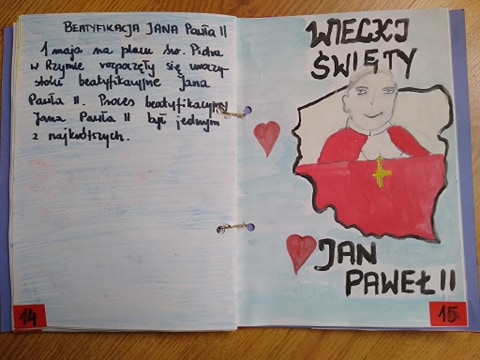 BEATYFIKACJA JANA PAWŁA II
1 maja na placu św. Piotra
w Rzymie rozpoczęły się uroczy
stości beatyfikacyjne Jana
Pawła II. Proces beatyfikacyjny
Jana Pawła II był jednym
z najkrótszych.
14
WIELKI
ŚWIĘTY
JAN
PAWEŁ II
15